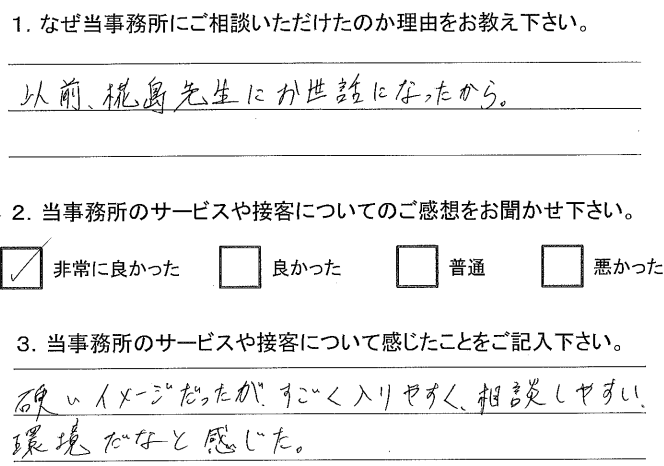 1. なぜ当事務所にご相談いただけたのか理由をお教え下さい。
以前、椛島先生にお世話になったから。
2. 当事務所のサービスや接客についてのご感想をお聞かせ下さい。
非常に良かった 良かった 普通 悪かった
3. 当事務所のサービスや接客について感じたことをご記入下さい。
硬いイメージだったが、すごく入りやすく、相談しやすい
環境だなと感じた。